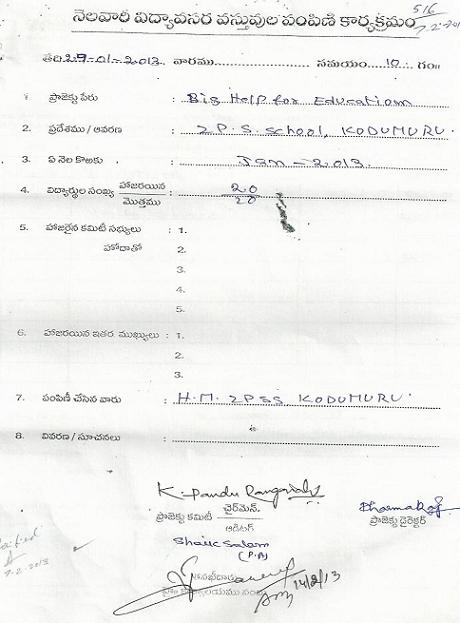 నెలవారీ విద్యావసర వస్తువుల పంపిణి కార్యక్రమం 516
7.2.201
తేది:29-01-2013. వారము.................... సమయం....10.... గం॥
1. ప్రాజెక్టు పేరు : Big Help for Education
2. ప్రదేశము / ఆవరణ : Z.P.S. School, KODUMURU.
3. ఏ నెల కొఱకు : Jan - 2013.
4. విద్యార్థుల సంఖ్య హాజరయిన : 20
మొత్తము 20
5. హాజరైన కమిటీ సభ్యులు : 1.
హోదాతో 2.
3.
4.
5.
6. హాజరయిన ఇతర ముఖ్యులు : 1.
2.
3.
7. పంపిణీ చేసిన వారు : H.M. ZPSS KODUMURU.
8. వివరణ / సూచనలు :
K. Pandu Rangaiah
ప్రాజెక్టు కమిటీ చైర్‌మెన్. ప్రాజెక్టు డైరెక్టర్
ఆడిటర్
Shaik Salam
(P.A)
14/2/13
7.2.2013